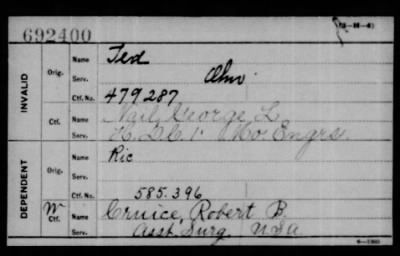 692400
INVALID
Orig. Name Ted
Serv.
Ctf. No. 479287
Ctf. Name Nail, George L
Serv. H. D. C. 1" Mo Engrs.
DEPENDENT
Orig. Name Ric
Serv.
Ctf. No. 585.396
W Ctf. Name Cruice, Robert B.
Serv. Asst. Surg. USA